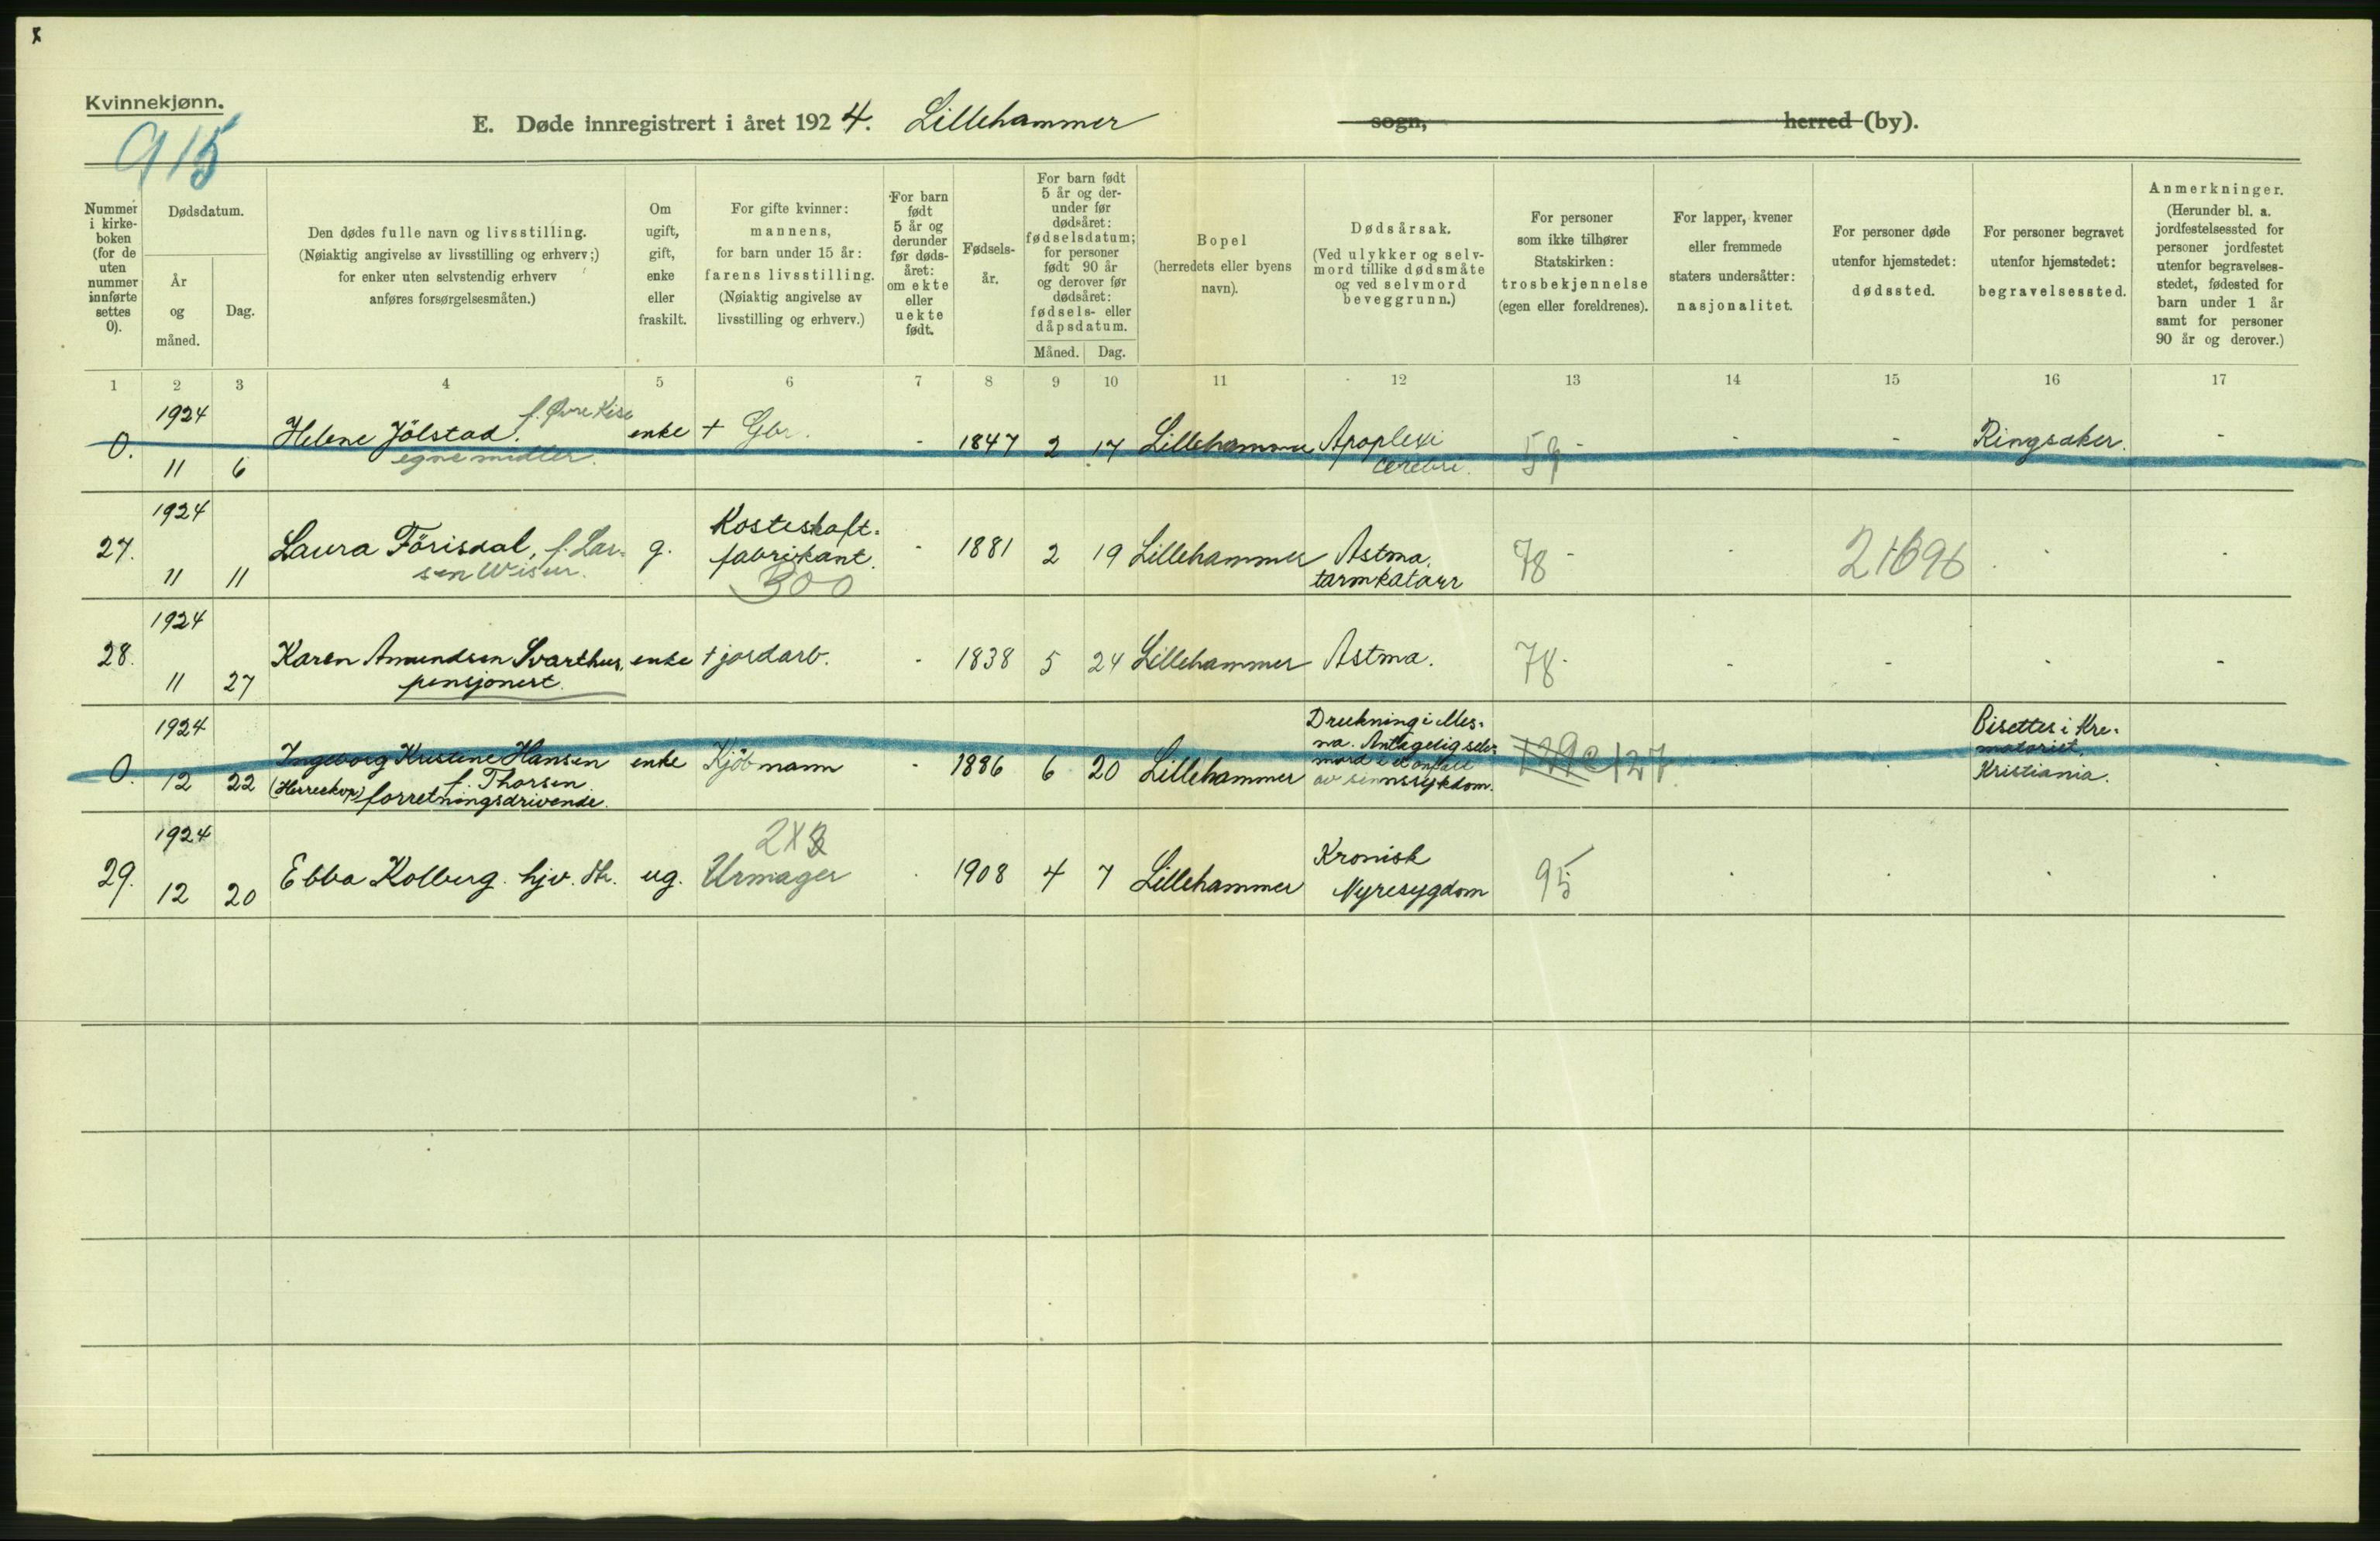 Kvinnekjønn.
915
E. Døde innregistrert i året 1924. Lillehammer sogn, herred (by).
Nummer i kirke-boken (for de uten nummer innførte settes 0).
Dødsdatum.
År og måned.
Dag.
Den dødes fulle navn og livsstilling.
(Nøiaktig angivelse av livsstilling og erhverv;)
for enker uten selvstendig erhverv
anføres forsørgelsesmåten.)
Om ugift, gift, enke eller fraskilt.
For gifte kvinner:
mannens,
for barn under 15 år:
farens livsstilling.
(Nøiaktig angivelse av
livsstilling og erhverv.)
For barn født 5 år og derunder før døds-året: om ekte eller uekte født.
Fødsels-år.
For barn født
5 år og der-
under før
dødsåret:
fødselsdatum;
for personer
født 90 år
og derover før
dødsåret:
fødsels- eller
dåpsdatum.
Måned. Dag.
Bopel
(herredets eller byens
navn).
Dødsårsak.
(Ved ulykker og selv-
mord tillike dødsmåte
og ved selvmord
beveggrunn.)
For personer
som ikke tilhører
Statskirken:
trosbekjennelse
(egen eller foreldrenes).
For lapper, kvener
eller fremmede
staters undersåtter:
nasjonalitet.
For personer døde
utenfor hjemstedet:
dødssted.
For personer begravet
utenfor hjemstedet:
begravelsessted.
Anmerkninger.
(Herunder bl. a.
jordfestelsessted for
personer jordfestet
utenfor begravelses-
stedet, fødested for
barn under 1 år
samt for personer
90 år og derover.)
1 2 3 4 5 6 7 8 9 10 11 12 13 14 15 16 17
1924 f. Øvre Kise
0. Helene Jölstad. enke + Gbr. - 1847 2 17 Lillehammer Apoplexi - - - Ringsaker. -
11 6 egne midler. cerebri.
1924 Kosteskaft-
27. Laura Förisdal, f. Lar- g. fabrikant. - 1881 2 19 Lillehammer Astma. 78 - - 21696 - -
11 11 300 tarmkatarr
1924
28. Karen Amundsen Svarthus, enke + jordarb. - 1838 5 24 Lillehammer Astma. 78 - - - - -
11 27 pensjonert.
1924 Drukning i Mes- Bisettes i Kre-
Ingeborg Kristine Hansen enke Kjöbmann na. Antagelig selv- matoriet,
0. 12 22 f. Thorsen - 1886 6 20 Lillehammer mord i et anfall 127 Kristiania.
forretningsdrivende. av sinnssykdom.
1924 Kronisk
29. Ebba Kolberg. hjv. dtr. ug. Urmager - 1908 4 7 Lillehammer Nyresygdom 95
12 20